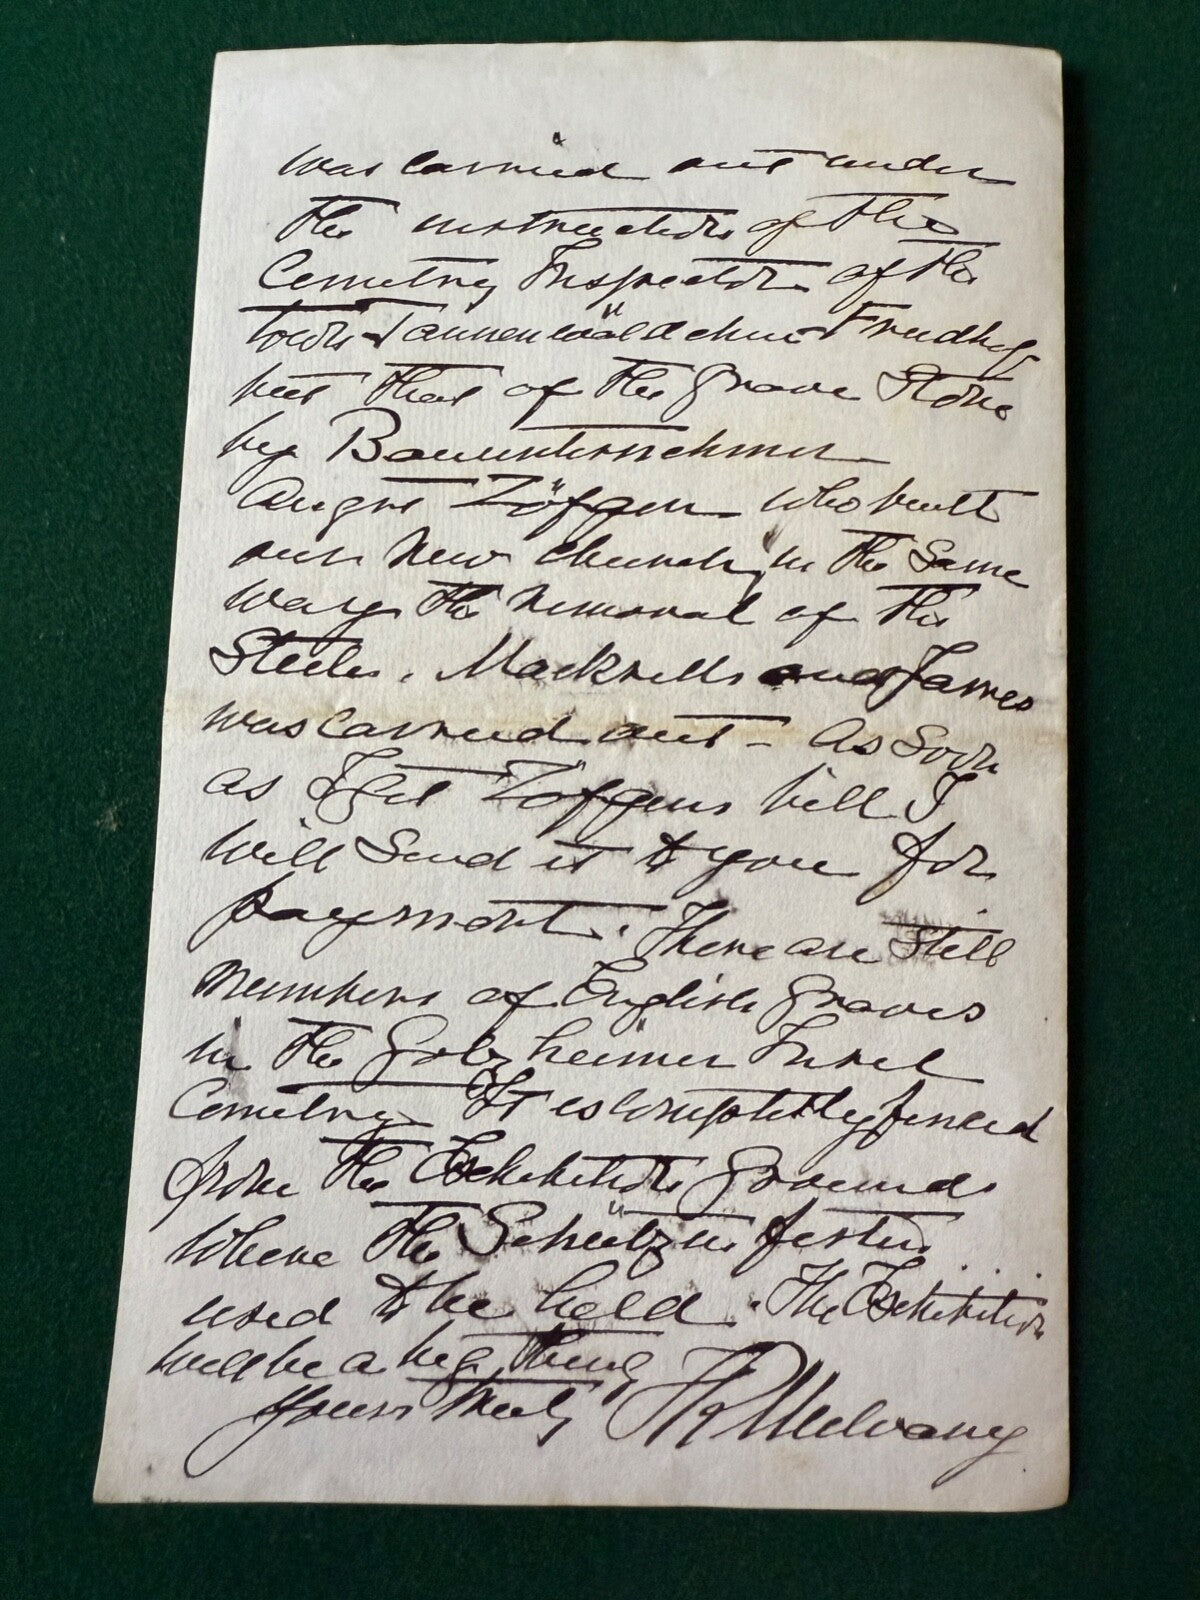 was carried out under
the instructions of the
Cemetery Inspector of the
town Tannenwäldchen Friedhof
but that of the Grave Stone
by Bauunternehmer
August Zöfgen who built
our new church, in the same
way the removal of the
Steeles, Macknells and James
was carried out - As soon
as I get Zöfgens bill I
will send it to you for
payment. There are still
numbers of English Graves
in the Golzheimer Insel
Cemetery It is completely fenced
from the Exhibition Grounds
where the Schützen festen
used to be held. The Exhibition
will be a big thing
Yours truly